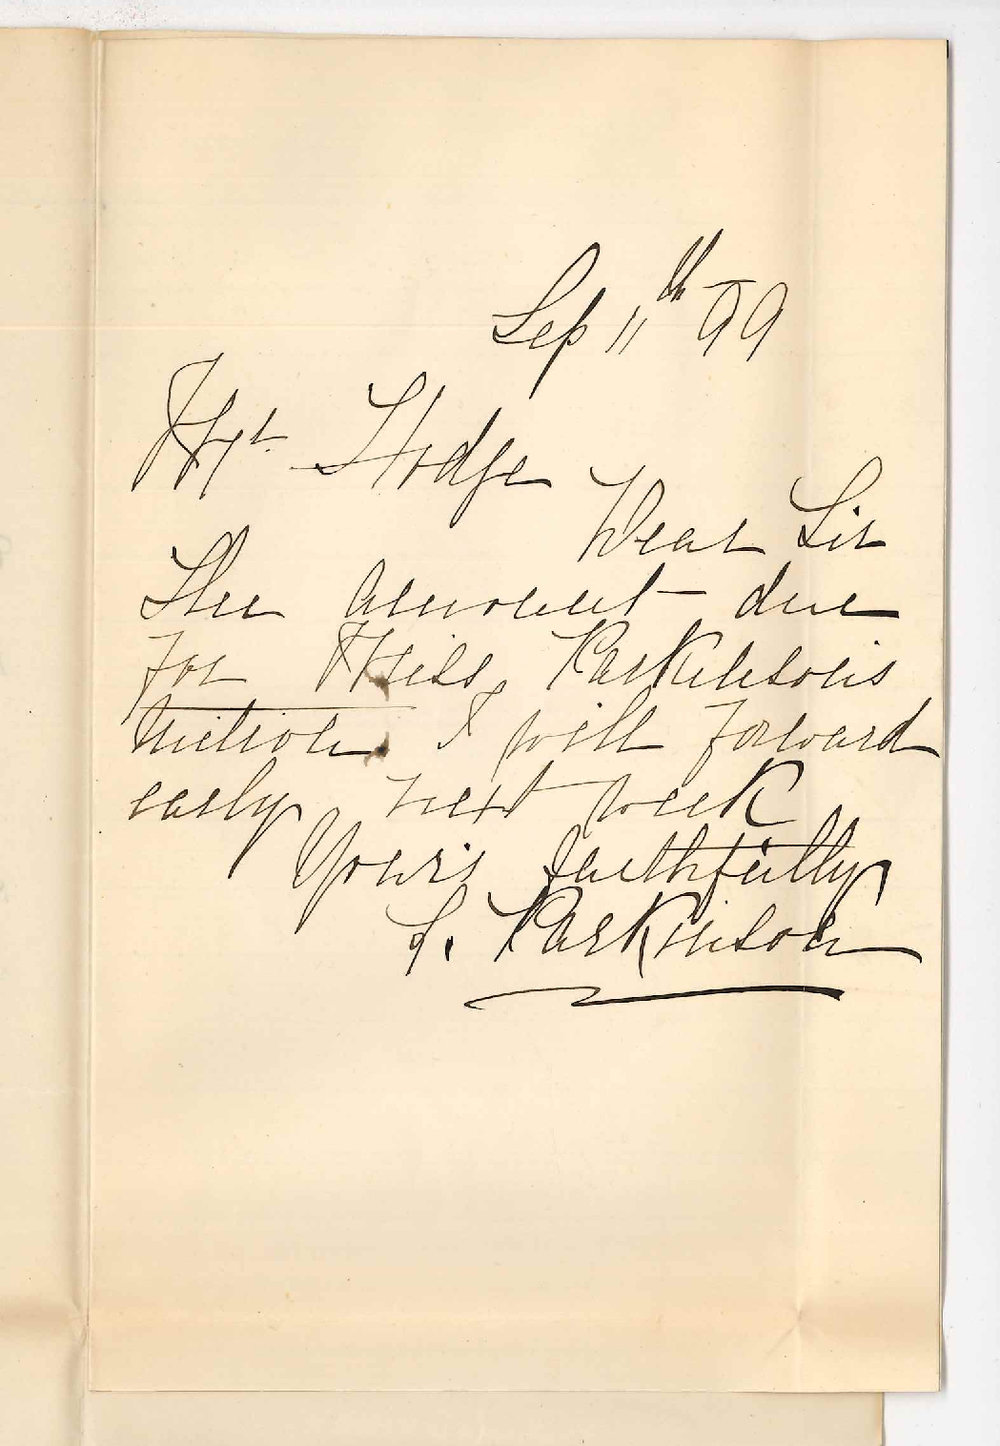 Sep 11th 99
Mr. Hodge
Dear Sir
The amount due
for Miss Parkinson's
tuition I will forward
early next week
Yours faithfully
S. Parkinson